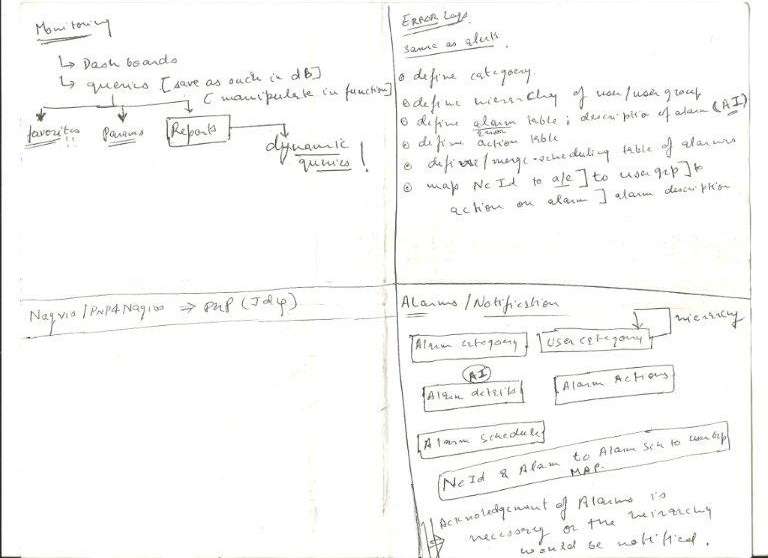 Monitoring
↳ Dash boards
↳ queries [save as such in dB]
[manipulate in function]
favorites !!
Params
Reports
dynamic queries !
ERROR Logs
same as alerts.
define category
define hierarchy of user/user group
define alarm table ; description of alarm (AI)
error
define action table
define/merge-scheduling table of alarms
map NeId to a/e] to usergrp] to
action on alarm] alarm description
Nagvis/PNP4Nagios ⇒ PHP (Jdip)
Alarms/Notification
hierarchy
Alarm category
User category
AI
Alarm details
Alarm Actions
Alarm Schedule
NeId & Alarm to Alarm Sch to usergrp
MAP.
Acknowledgement of Alarms is
necessary or the hierarchy
would be notified.